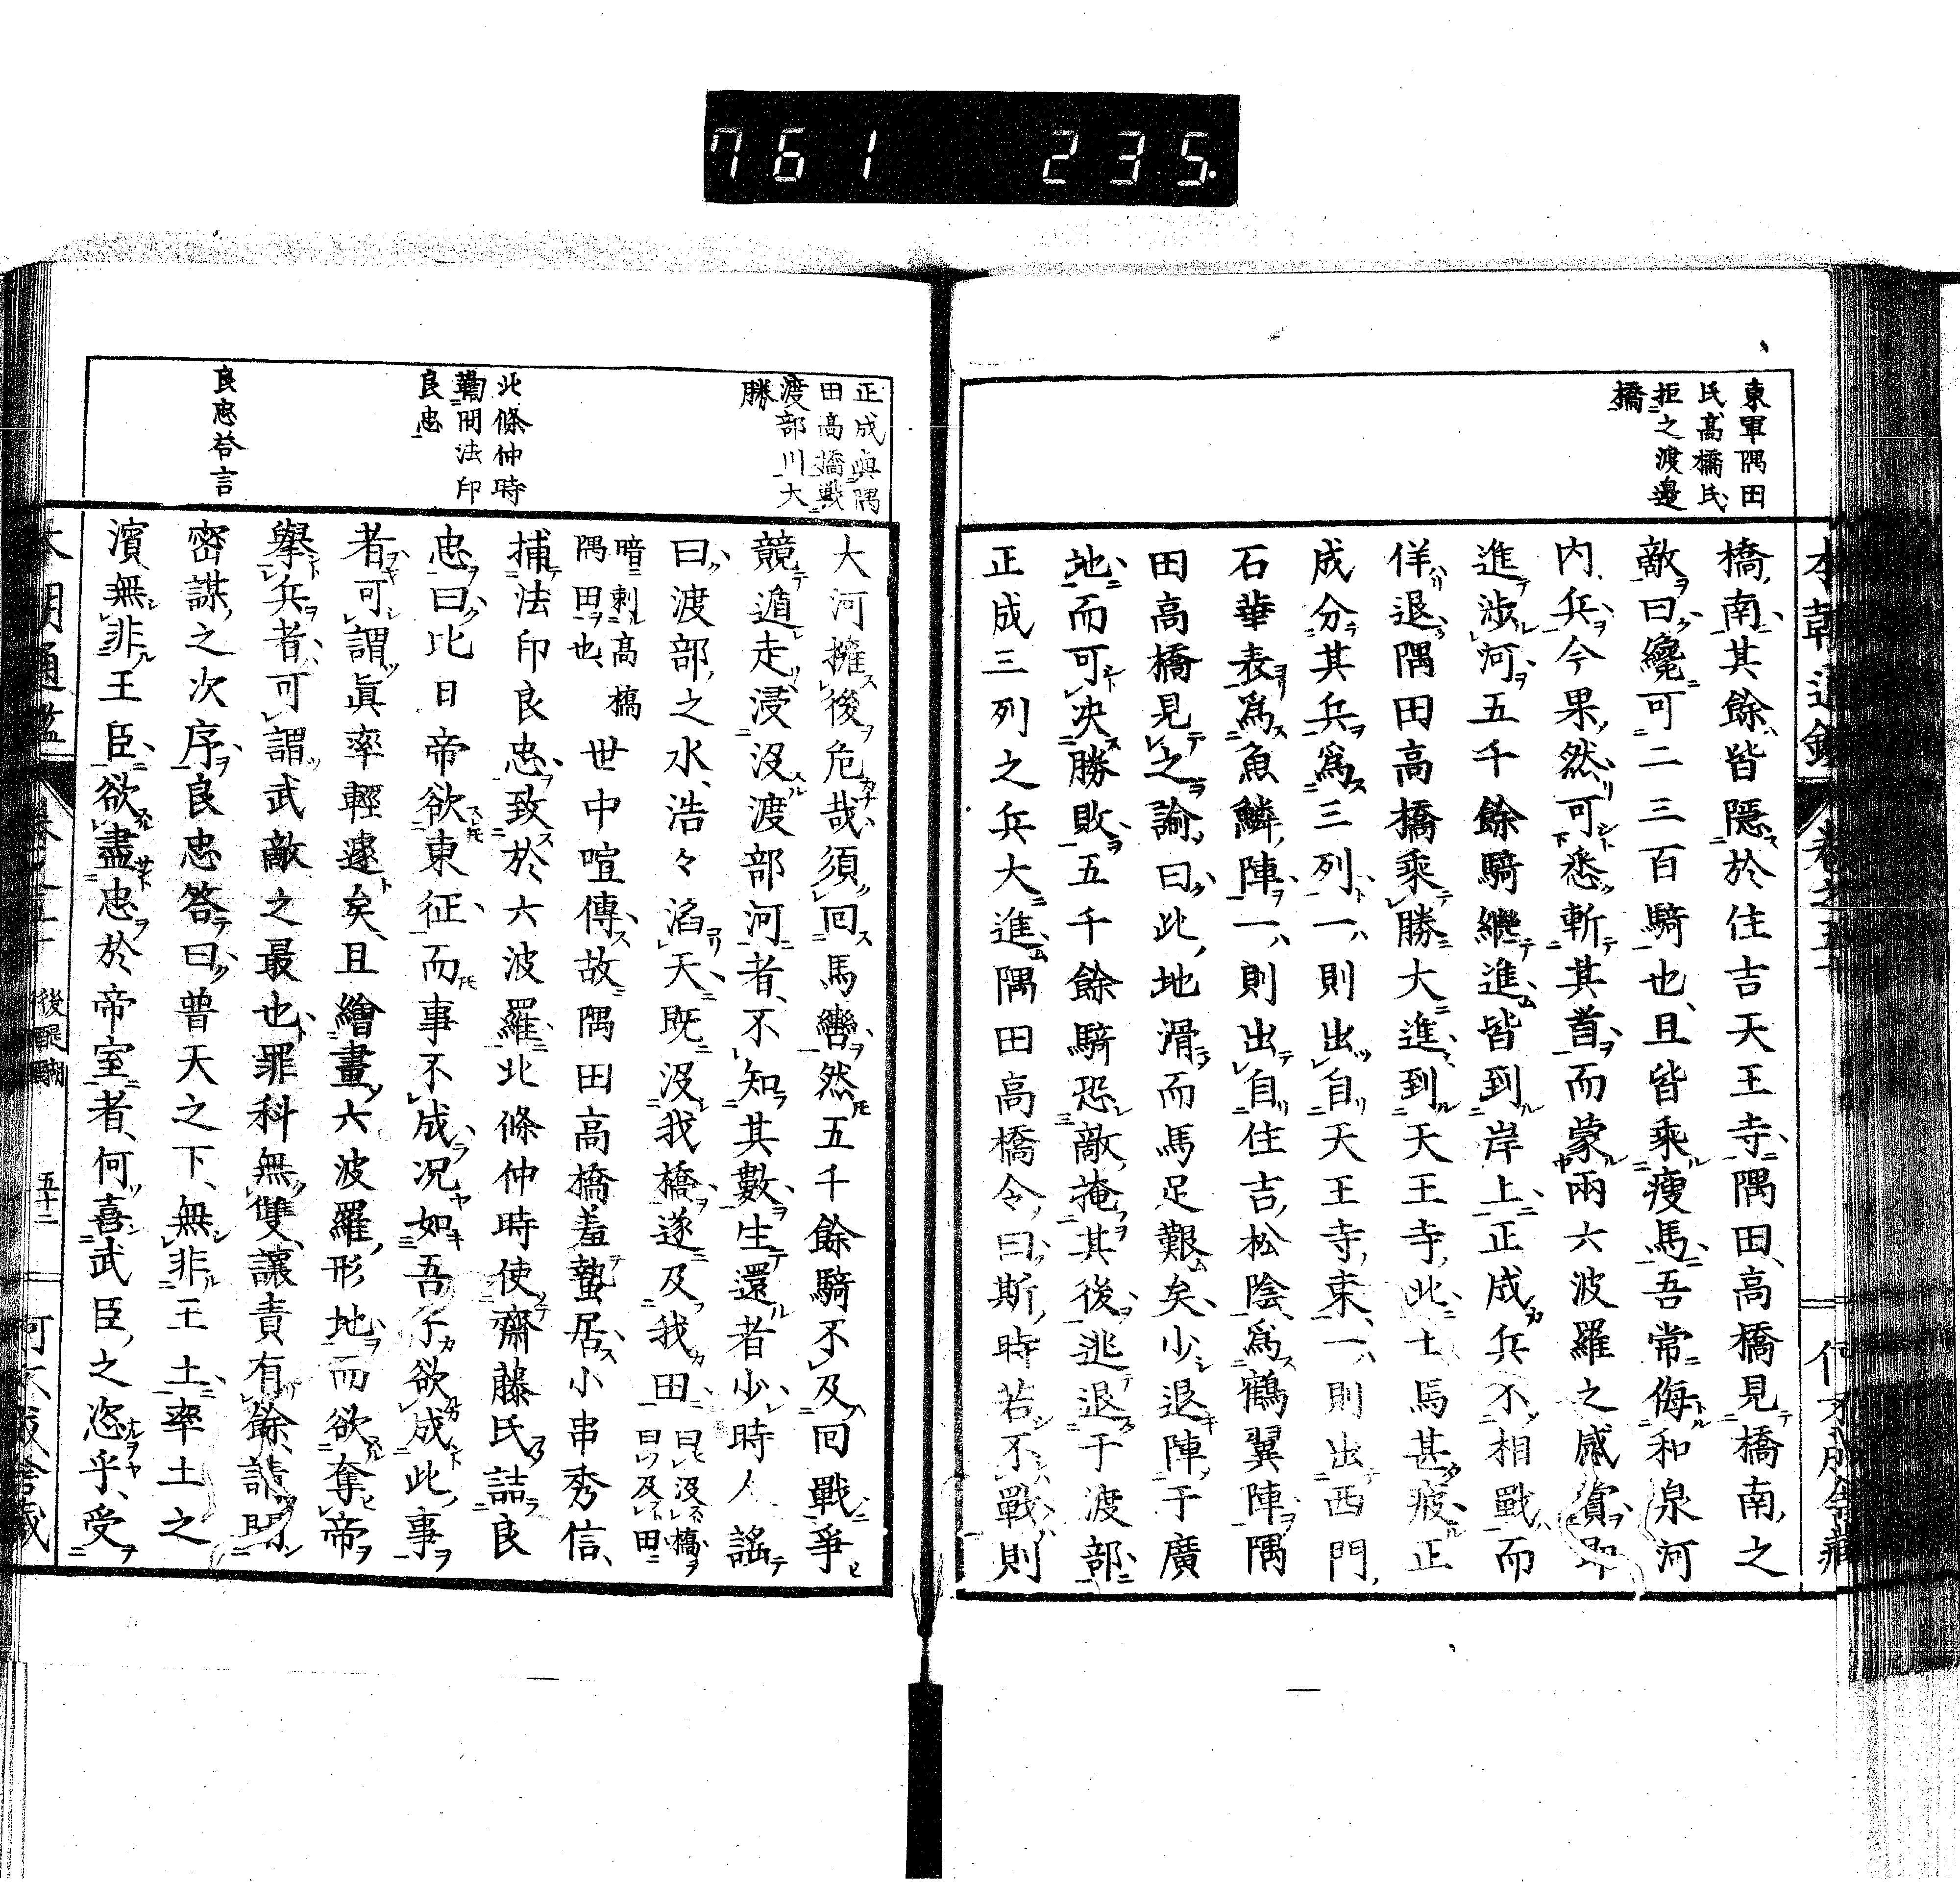 761 235.
東軍隅田
氏高橋氏
拒之渡邊
橋
橋南其餘皆隱於住吉天王寺隅田高橋見橋南之
敵曰纔可二三百騎也且皆乘瘦馬吾常侮和泉河
内兵今果然可悉斬其首而蒙兩六波羅之感賞即
進渉河五千餘騎繼進皆到岸上正成兵不相戰而
佯退隅田高橋乘勝大進到天王寺此士馬甚疲正
成分其兵爲三列一則出自天王寺東一則出西門
石華表爲魚鱗陣一則出自住吉松陰爲鶴翼陣隅
田高橋見之諭曰此地滑而馬足艱矣少退陣于廣
地而可决勝敗五千餘騎恐敵掩其後逃退于渡部
正成三列之兵大進隅田高橋令曰斯時若不戰則
正成與隅
田高橋戰
渡部川大
勝
北條仲時
鞫問法印
良忠
良忠答言
大河擁後危哉須回馬轡然五千餘騎不及回戰爭
競遁走浸没渡部河者不知其數生還者少時人謠
曰渡部之水浩々滔天既没我橋遂及我田曰没橋曰及田
暗刺高橋隅田也世中喧傳故隅田高橋羞蟄居小串秀信
捕法印良忠致於六波羅北條仲時使齋藤氏詰良
忠曰比日帝欲東征而事不成况如吾子欲成此事
者可謂眞率輕遽矣且繪畫六波羅形地而欲奪帝
擧兵者可謂武敵之最也罪科無雙讓責有餘請聞
密謀之次序良忠答曰普天之下無非王土率土之
濱無非王臣欲盡忠於帝室者何喜武臣之恣乎受
後醍醐
五十二